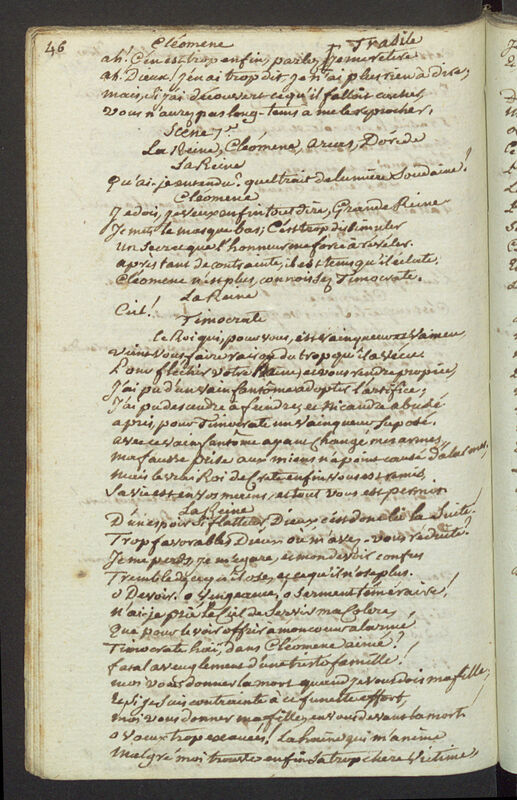 46 Cléomene Trasile
ah! C'en est trop enfin, parlez, je me retire
ah Dieux! j'en ai trop dit, je n'ai plus rien à dire,
mais, si j'ai découvert ce qu'il falloit cacher
vous n'aurez pas long-tems à me le reprocher.
Scene 7e
La Reine, Cléomene, arcas, Doride
La Reine
Qu'ai-je entendu? quel trait de lumiere soudaine!
Cléomene
Je dois, je veux enfin tout dire, Grande Reine
Je mets le masque bas; C'est trop dissimuler
Un secret que l'honneur me force à réveler.
après tant de contrainte, il est tems qu'il éclate.
Cléomene n'est plus, connoissez Timocrate.
La Reine
Ciel!
Timocrate
Le Roi qui, pour vous, est vainqueur et vaincu
vient vous faire raison du trop qu'il a vécu
Pour fléchir votre haine, et vous rendre propice,
J'ai pu d'un vain fantôme adopter l'artifice;
J'ai pu descendre à feindre, et Nicandre abusé
a pris, pour Timocrate un vainqueur suposé.
avec ce vain fantôme ayant changé mes armes
ma fausse prise aux miens n'a point causé d'alarmes,
mais le vrai Roi de Crete enfin vous est remis,
Sa vie est en vos mains, et tout vous est permis
La Reine
D'un espoir si flatteur Dieux! c'est donc là la suite.
Trop favorables Dieux où m'avez-vous réduite?
Je me perds, je m'egare, et mon devoir confus
Tremble de ce qu'il ose, et ce qu'il n'ose plus.
o Devoir! o Vengeance! o Serment téméraire!
n'ai-je prié le Ciel de servir ma Colere,
Que pour le voir offrir à mon coeur alarmé
Timocrate haï, dans Cléomene aimé?
fatal aveuglement d'une triste famille!
moi vous donner la mort quand je vous dois ma fille,
et si je suis contrainte à ce funeste effort,
moi vous donner ma fille, en vous devant la mort
o vœux trop exaucés! la haine qui m'anime
malgré moi trouve enfin sa trop chere victime,